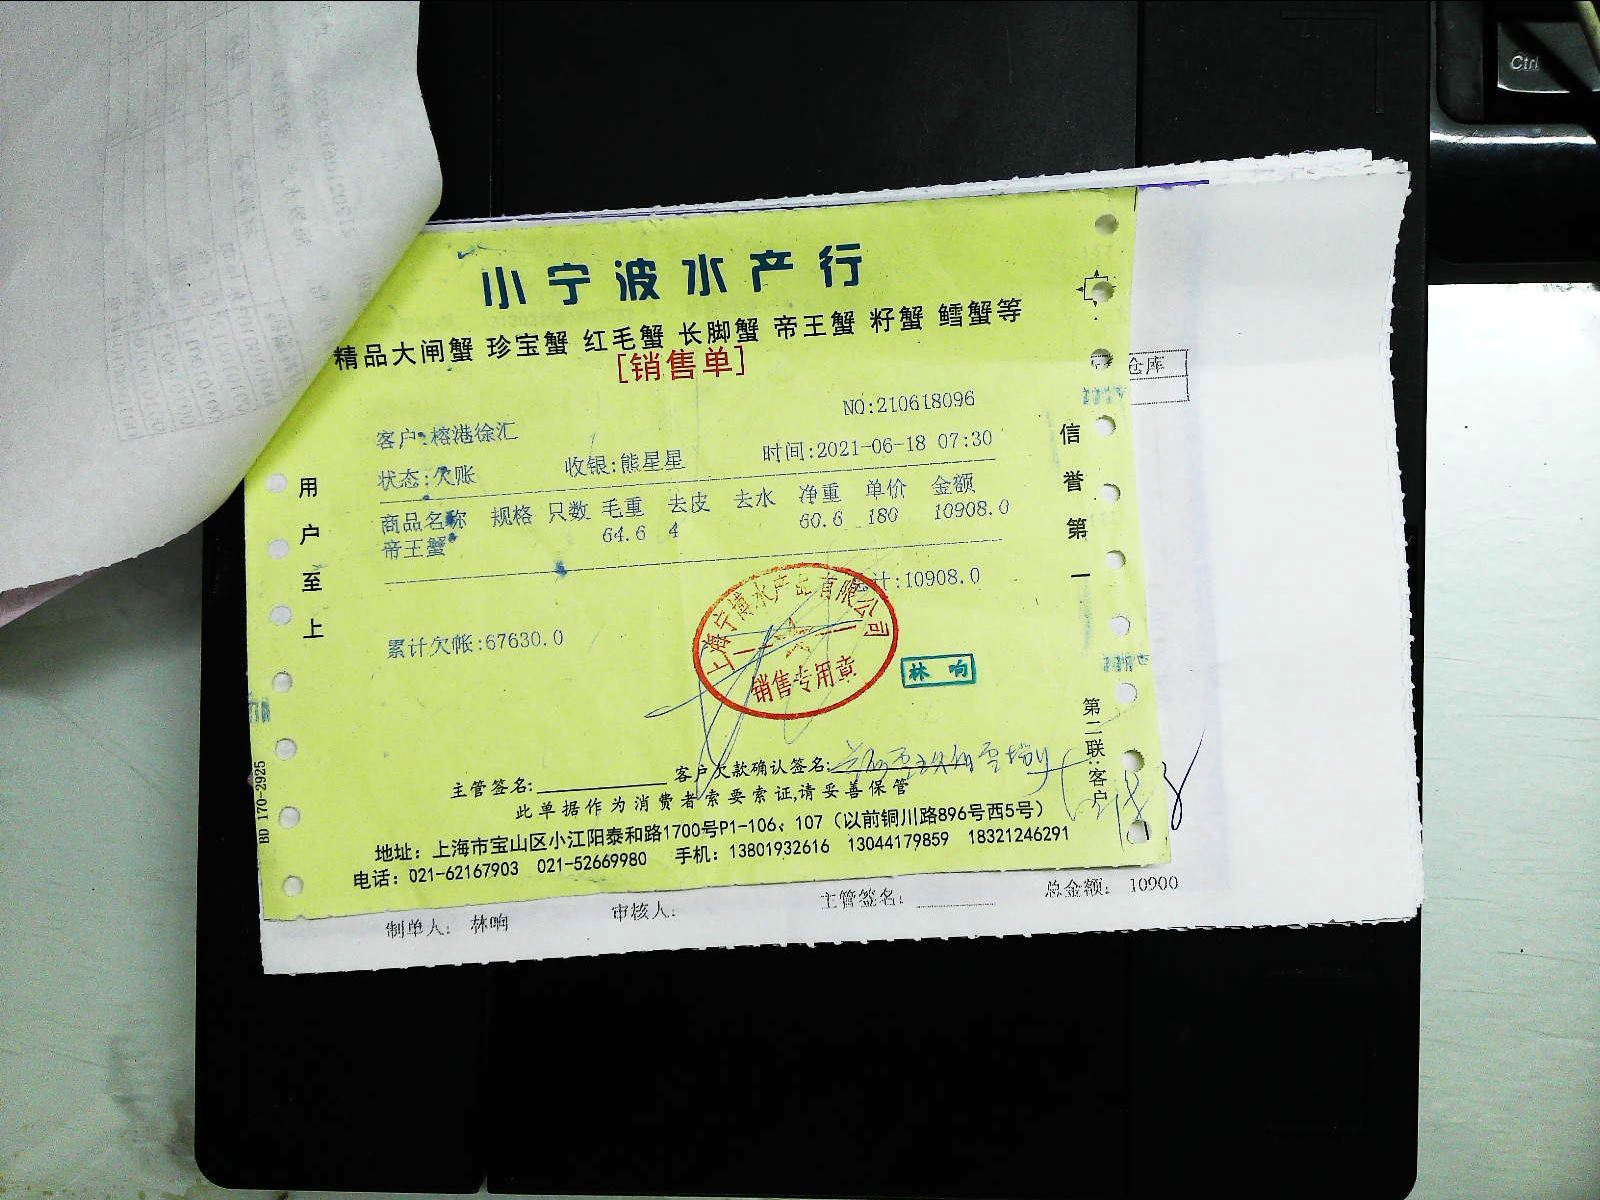 Ctrl
小宁波水产行
精品大闸蟹 珍宝蟹 红毛蟹 长脚蟹 帝王蟹 籽蟹 鳕蟹等
[销售单]
NO:210618096
客户:榕港徐汇
状态:欠账 收银:熊星星 时间:2021-06-18 07:30
商品名称 规格 只数 毛重 去皮 去水 净重 单价 金额
帝王蟹 64.6 4 60.6 180 10908.0
计:10908.0
累计欠帐:67630.0
上海宁博水产品有限公司
销售专用章
林响
用户至上
信誉第一
第二联:客户
仓库
BD 170-2925
主管签名: 客户欠款确认签名:
此单据作为消费者索要索证,请妥善保管
地址: 上海市宝山区小江阳泰和路1700号P1-106、107 (以前铜川路896号西5号)
电话: 021-62167903 021-52669980 手机: 13801932616 13044179859 18321246291
制单人: 林响 审核人: 主管签名: 总金额: 10900